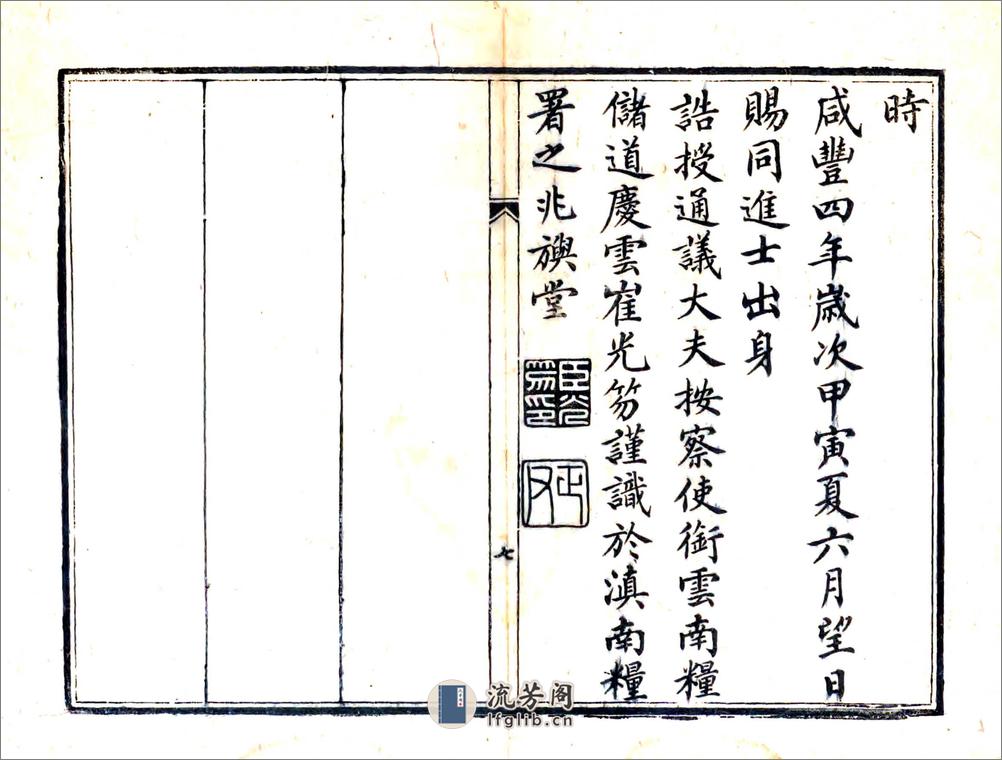 時
咸豐四年歲次甲寅夏六月望日
賜同進士出身
誥授通議大夫按察使銜雲南糧
儲道慶雲崔光笏謹識於滇南糧
署之兆旟堂
臣光笏印
七
流芳阁
lfglib.cn